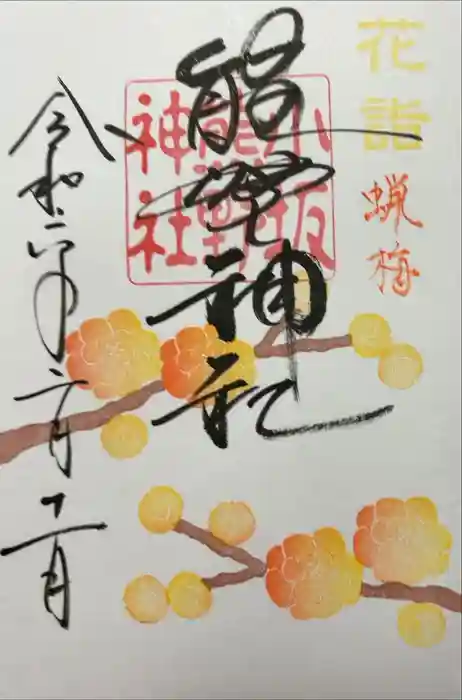 花詣
蝋梅
熊野神社
小坂
熊野
神社
令和六年二月十一日